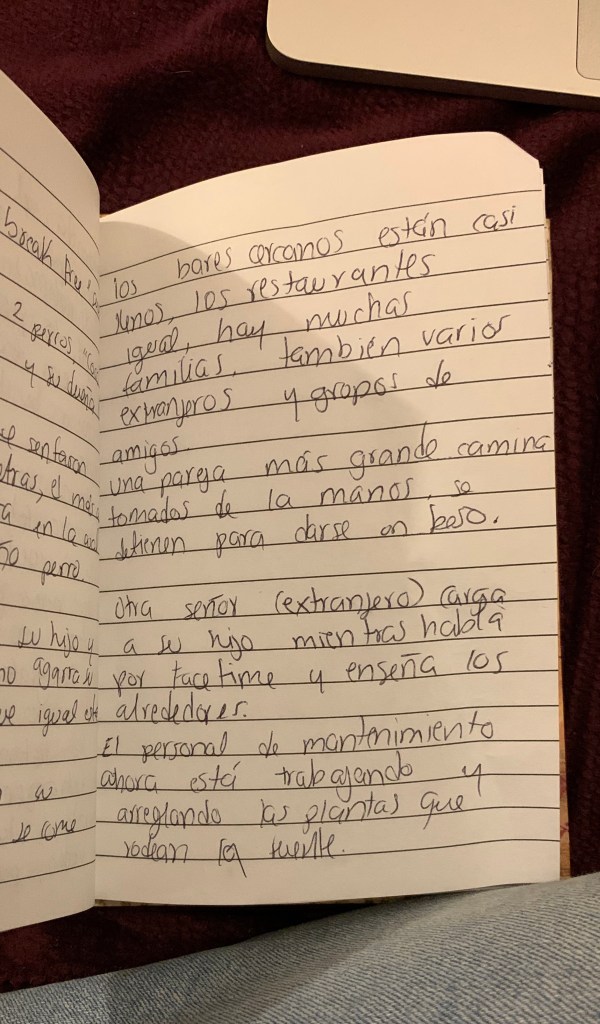 break
2 perros
y su dueña
se sentaron
otras, el más
en la
perro
su hijo y
agarra
igual
se come
los bares cercanos están casi
llenos, los restaurantes
igual, hay muchas
familias, también varios
extranjeros y grupos de
amigos.
una pareja más grande camina
tomados de la manos, se
detienen para darse un beso.
Otra señor (extranjero) carga
a su hijo mientras habla
por facetime y enseña los
alrededores.
El personal de mantenimiento
ahora está trabajando y
arreglando las plantas que
rodean la fuente.